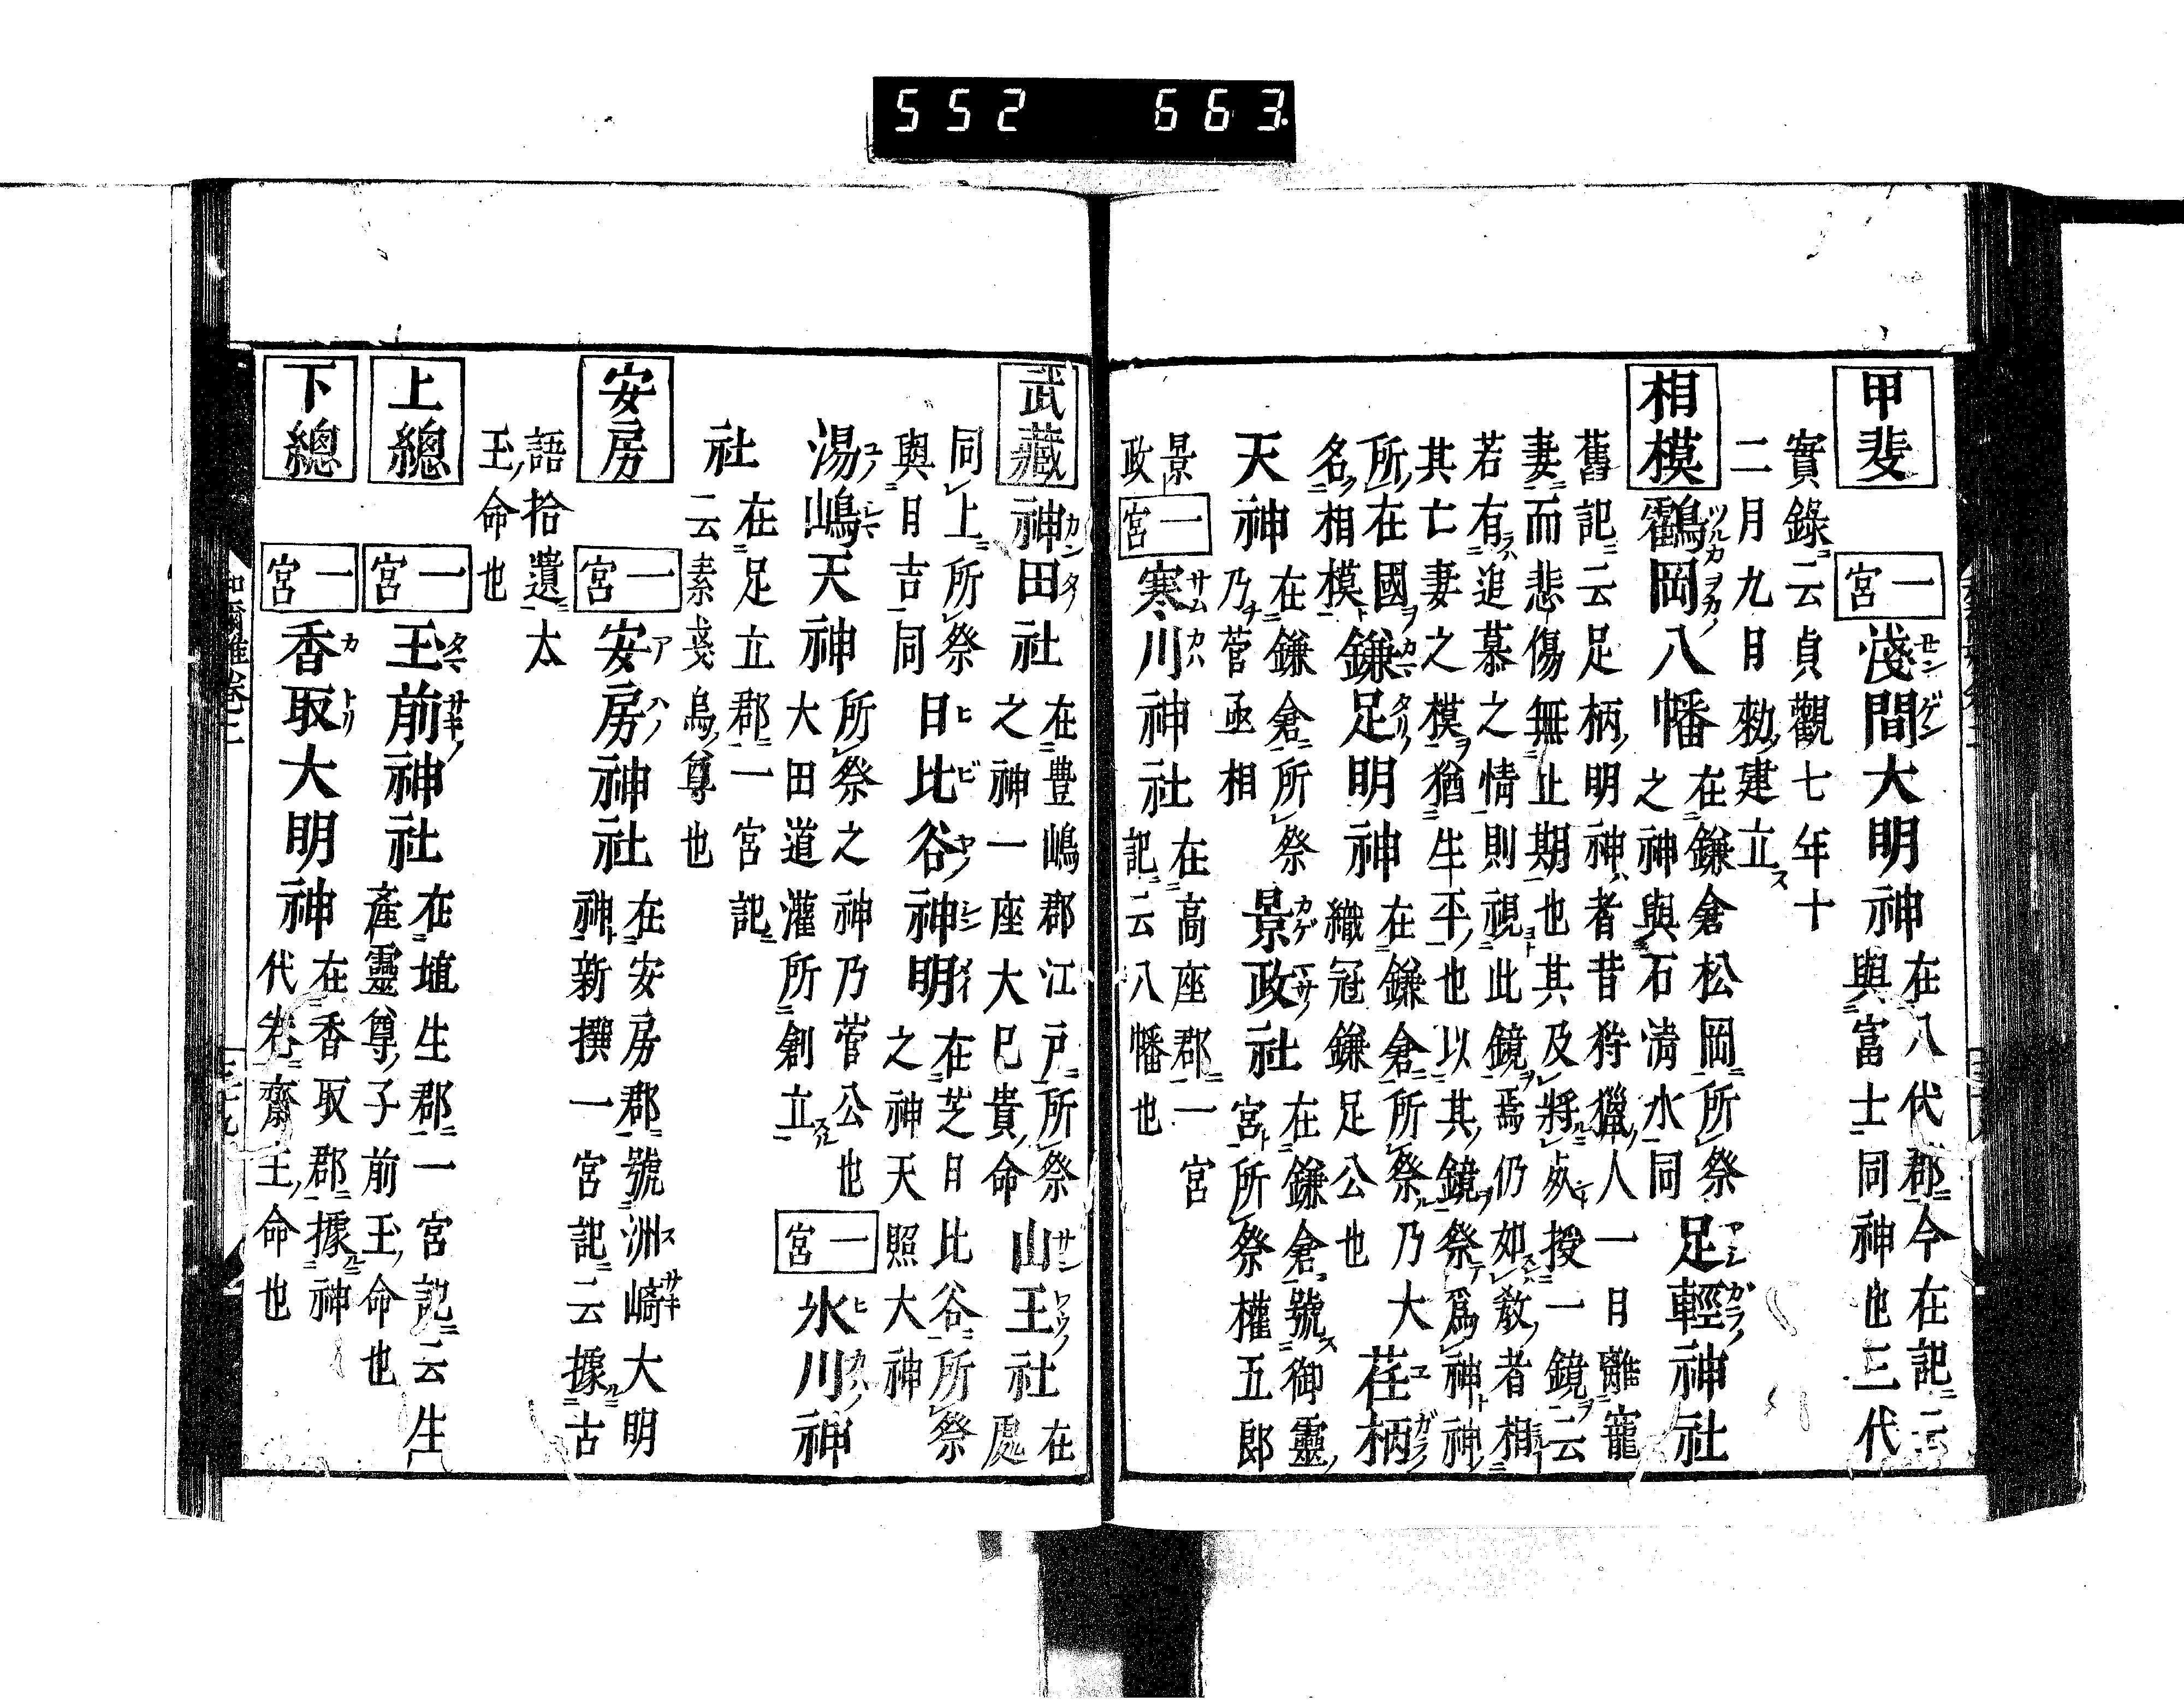 552 663
甲斐 一宮 淺間大明神 在八代郡今在記云
與富士同神也三代
實錄云貞觀七年十
二月九日勑建立
相模 鶴岡八幡 在鎌倉松岡所祭
之神與石淸水同 足輕神社
舊記云足柄明神者昔狩獵人一日離寵
妻而悲傷無止期也其及將歿授一鏡云
若有追慕之情則視此鏡焉仍如敎者相
其亡妻之模猶生平也以其鏡祭爲神神
所在國
名相模 鎌足明神 在鎌倉所祭乃大
織冠鎌足公也 荏柄
天神 在鎌倉所祭
乃菅丞相 景政社 在鎌倉號御靈
宮所祭權五郎
景
政 一宮 寒川神社 在高座郡一宮
記云八幡也
武藏 神田社 在豊嶋郡江戶所祭
之神一座大巳貴命 山王社 在
處
同上所祭
與日吉同 日比谷神明 在芝日比谷所祭
之神天照大神
湯嶋天神 所祭之神乃菅公也
大田道灌所創立 一宮 氷川神
社 在足立郡一宮記
云素戔烏尊也
安房 一宮 安房神社 在安房郡號洲崎大明
神新撰一宮記云據古
語拾遺太
玉命也
上總 一宮 玉前神社 在埴生郡一宮記云生
產靈尊子前玉命也
下總 一宮 香取大明神 在香取郡據神
代卷齋主命也